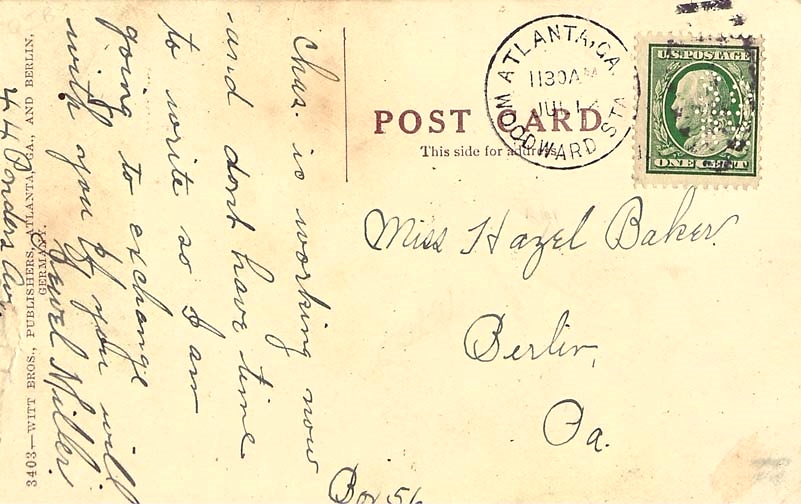 Chas. is working now
and dont have time
to write so I am
going to exchange
with you if you will
Jewel Miller.
44 Ponders Av.
3403—WITT BROS., PUBLISHERS, ATLANTA, GA., AND BERLIN,
GERMANY.
POST CARD
This side for address
ATLANTA, GA.
1130AM
JUL 1
WOODWARD STA
U.S. POSTAGE
ONE CENT
Miss Hazel Baker.
Berlin,
Pa.
Box 56